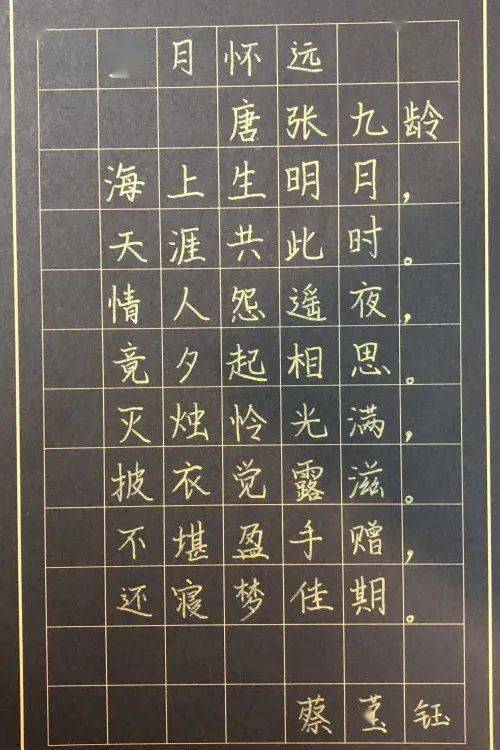 月怀远
唐张九龄
海上生明月，
天涯共此时。
情人怨遥夜，
竟夕起相思。
灭烛怜光满，
披衣觉露滋。
不堪盈手赠，
还寝梦佳期。
蔡 钰